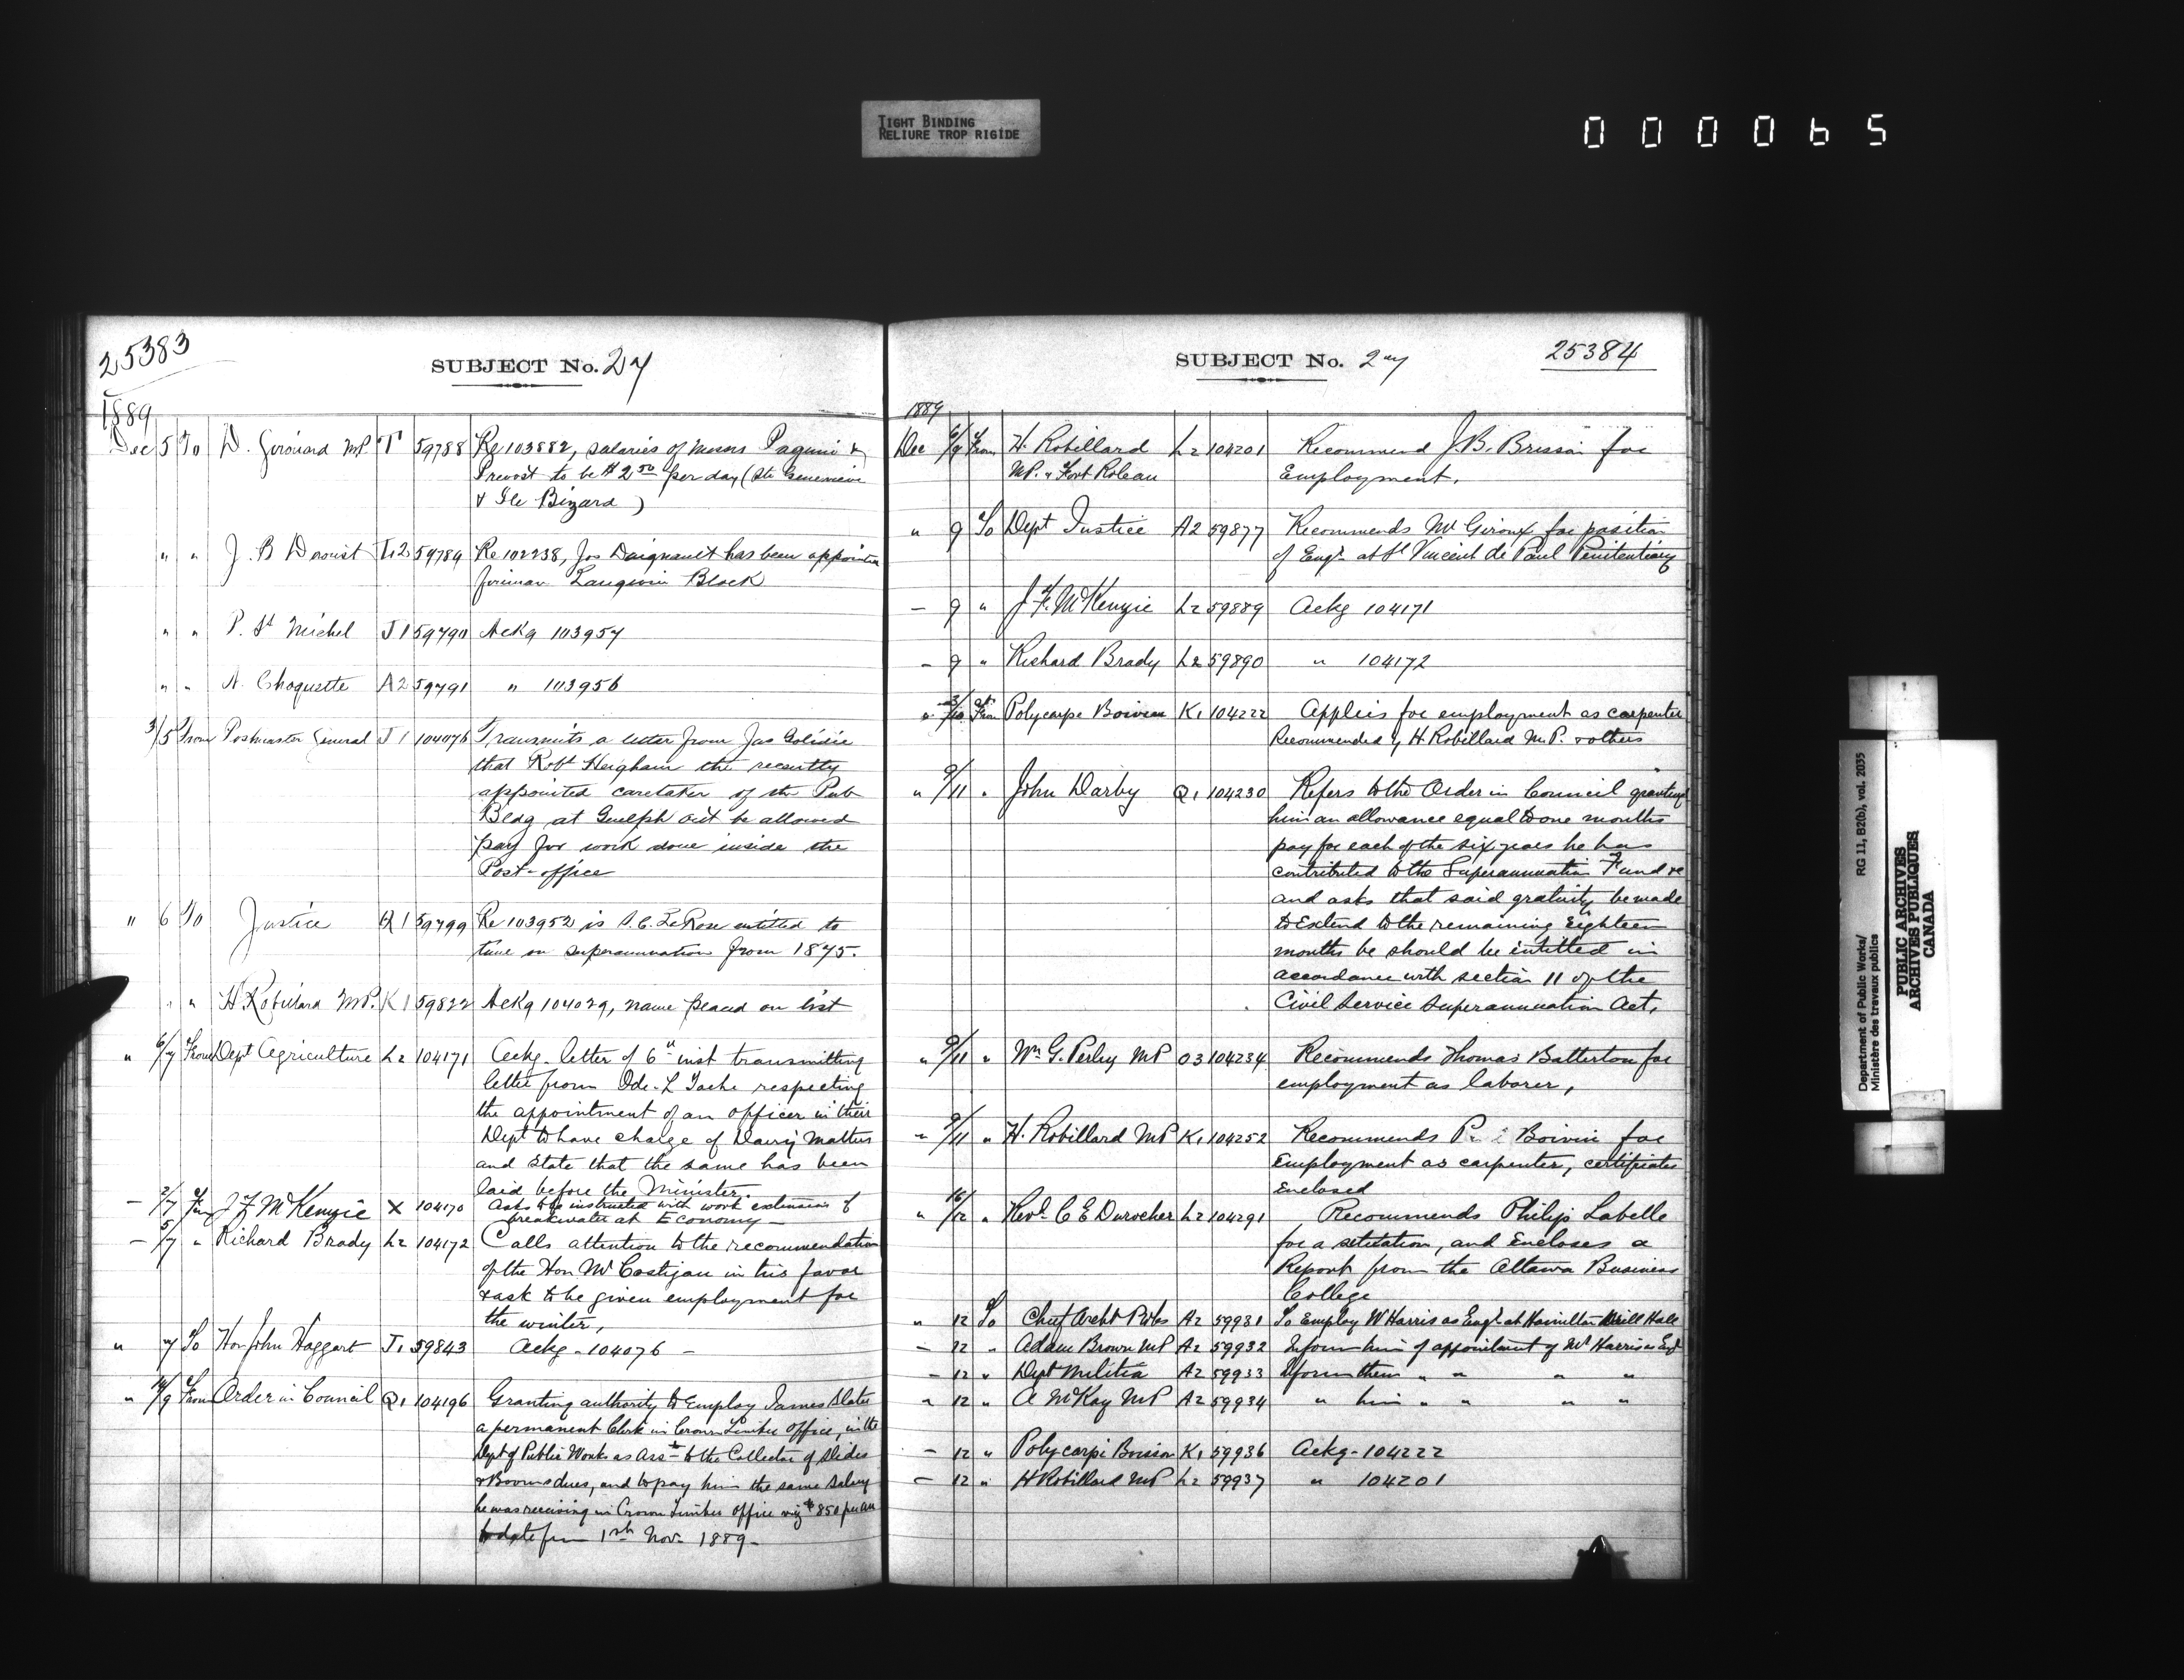 TIGHT BINDING
RELIURE TROP RIGIDE
000065
25383
SUBJECT No. 27
1889
Dec 5 To D. Girouard MP T 59788 Re 103882, salaries of Messrs Paquin &
Prevost to be $2.50 per day (Ste Genevieve
& Ile Bizard)
" " J. B Derouist L2 59789 Re 102238, Jos Daignault has been appointed
foreman Langevin Block
" " P. St Michel J1 59790 Ackg 103957
" " A. Choquette A2 59791 " 103956
3/5 From Postmaster General J1 104076 Transmits a letter from Jas
that Robt Heigham the recently
appointed caretaker of the Pub
Bldg at Guelph be allowed
pay for work done inside the
Post-office
" 6 To Justice Q1 59799 Re 103952 is A.C. LeRose entitled to
time on superannuation from 1875.
" " H Robillard M.P. K1 59822 Ackg 104029, name placed on list
" 6/7 From Dept Agriculture L2 104171 Ackg. letter of 6th inst transmitting
letter from L Tache respecting
the appointment of an officer in their
Dept to have charge of Dairy Matters
and state that the same has been
laid before the Minister.
- 2/7 From J F McKenzie X 104170 Asks to be instructed with work extension of
breakwater at Economy -
- 5/7 " Richard Brady L2 104172 Calls attention to the recommendation
of the Hon Mr Costigan in his favor
& ask to be given employment for
the winter,
" 7 To Hon John Haggart J1 59843 Ackg - 104076 -
" /9 From Order in Council Q1 104196 Granting authority to Employ James Slater
a permanent Clerk in Crown Timber Office, in the
Dept of Public Works as Asst to the Collector of Slides
& Booms dues, and to pay him the same salary
he was receiving in Crown Timber Office viz $850 per an
to date from 1st Nov. 1889 -
SUBJECT No. 27
25384
1889
Dec 6/9 From H. Robillard L2 104201 Recommend J.B. Brisson for
MP. & Robt Roleau Employment.
" 9 To Dept Justice A2 59877 Recommends Mr Giroux for position
of Engr at St Vincent de Paul Penitentiary
- 9 " J.F. McKenzie L2 59889 Ackg 104171
- 9 " Richard Brady L2 59890 " 104172
" 3/10 From Polycarpe Boivin K1 104222 Applies for employment as carpenter
Recommended by H Robillard M.P. & others
" 9/11 " John Darby Q1 104230 Refers to the Order in Council granting
him an allowance equal to one months
pay for each of the six years he has
contributed to the Superannuation Fund &c
and asks that said gratuity be made
to Extend to the remaining Eighteen
months he should be intitled in
accordance with section 11 of the
Civil Service Superannuation Act.
" 9/11 " Wm G. Perley MP O3 104234 Recommends Thomas Batterton for
employment as laborer,
" 9/11 " H. Robillard MP K1 104252 Recommends Boivin for
Employment as carpenter, certificates
Enclosed
" 10/12 " Revd. C E Durocher L2 104291 Recommends Philip Labelle
for a situation, and Encloses a
Report from the Ottawa Business
College
" 12 To Chief Archt P.Wks A2 59931 To Employ W Harris as Engr at Hamilton Drill Hall
- 12 " Adam Brown MP A2 59932 Inform him of appointment of Mr Harris as Engr
- 12 " Dept Militia A2 59933 Inform them " " " "
" 12 " A McKay MP A2 59934 " him " " " "
- 12 " Polycarpe Boivin K1 59936 Ackg - 104222
- 12 " H Robillard MP L2 59937 " 104201
Department of Public Works/ RG 11, B2(b), vol. 2035
Ministère des travaux publics
PUBLIC ARCHIVES
ARCHIVES PUBLIQUES
CANADA